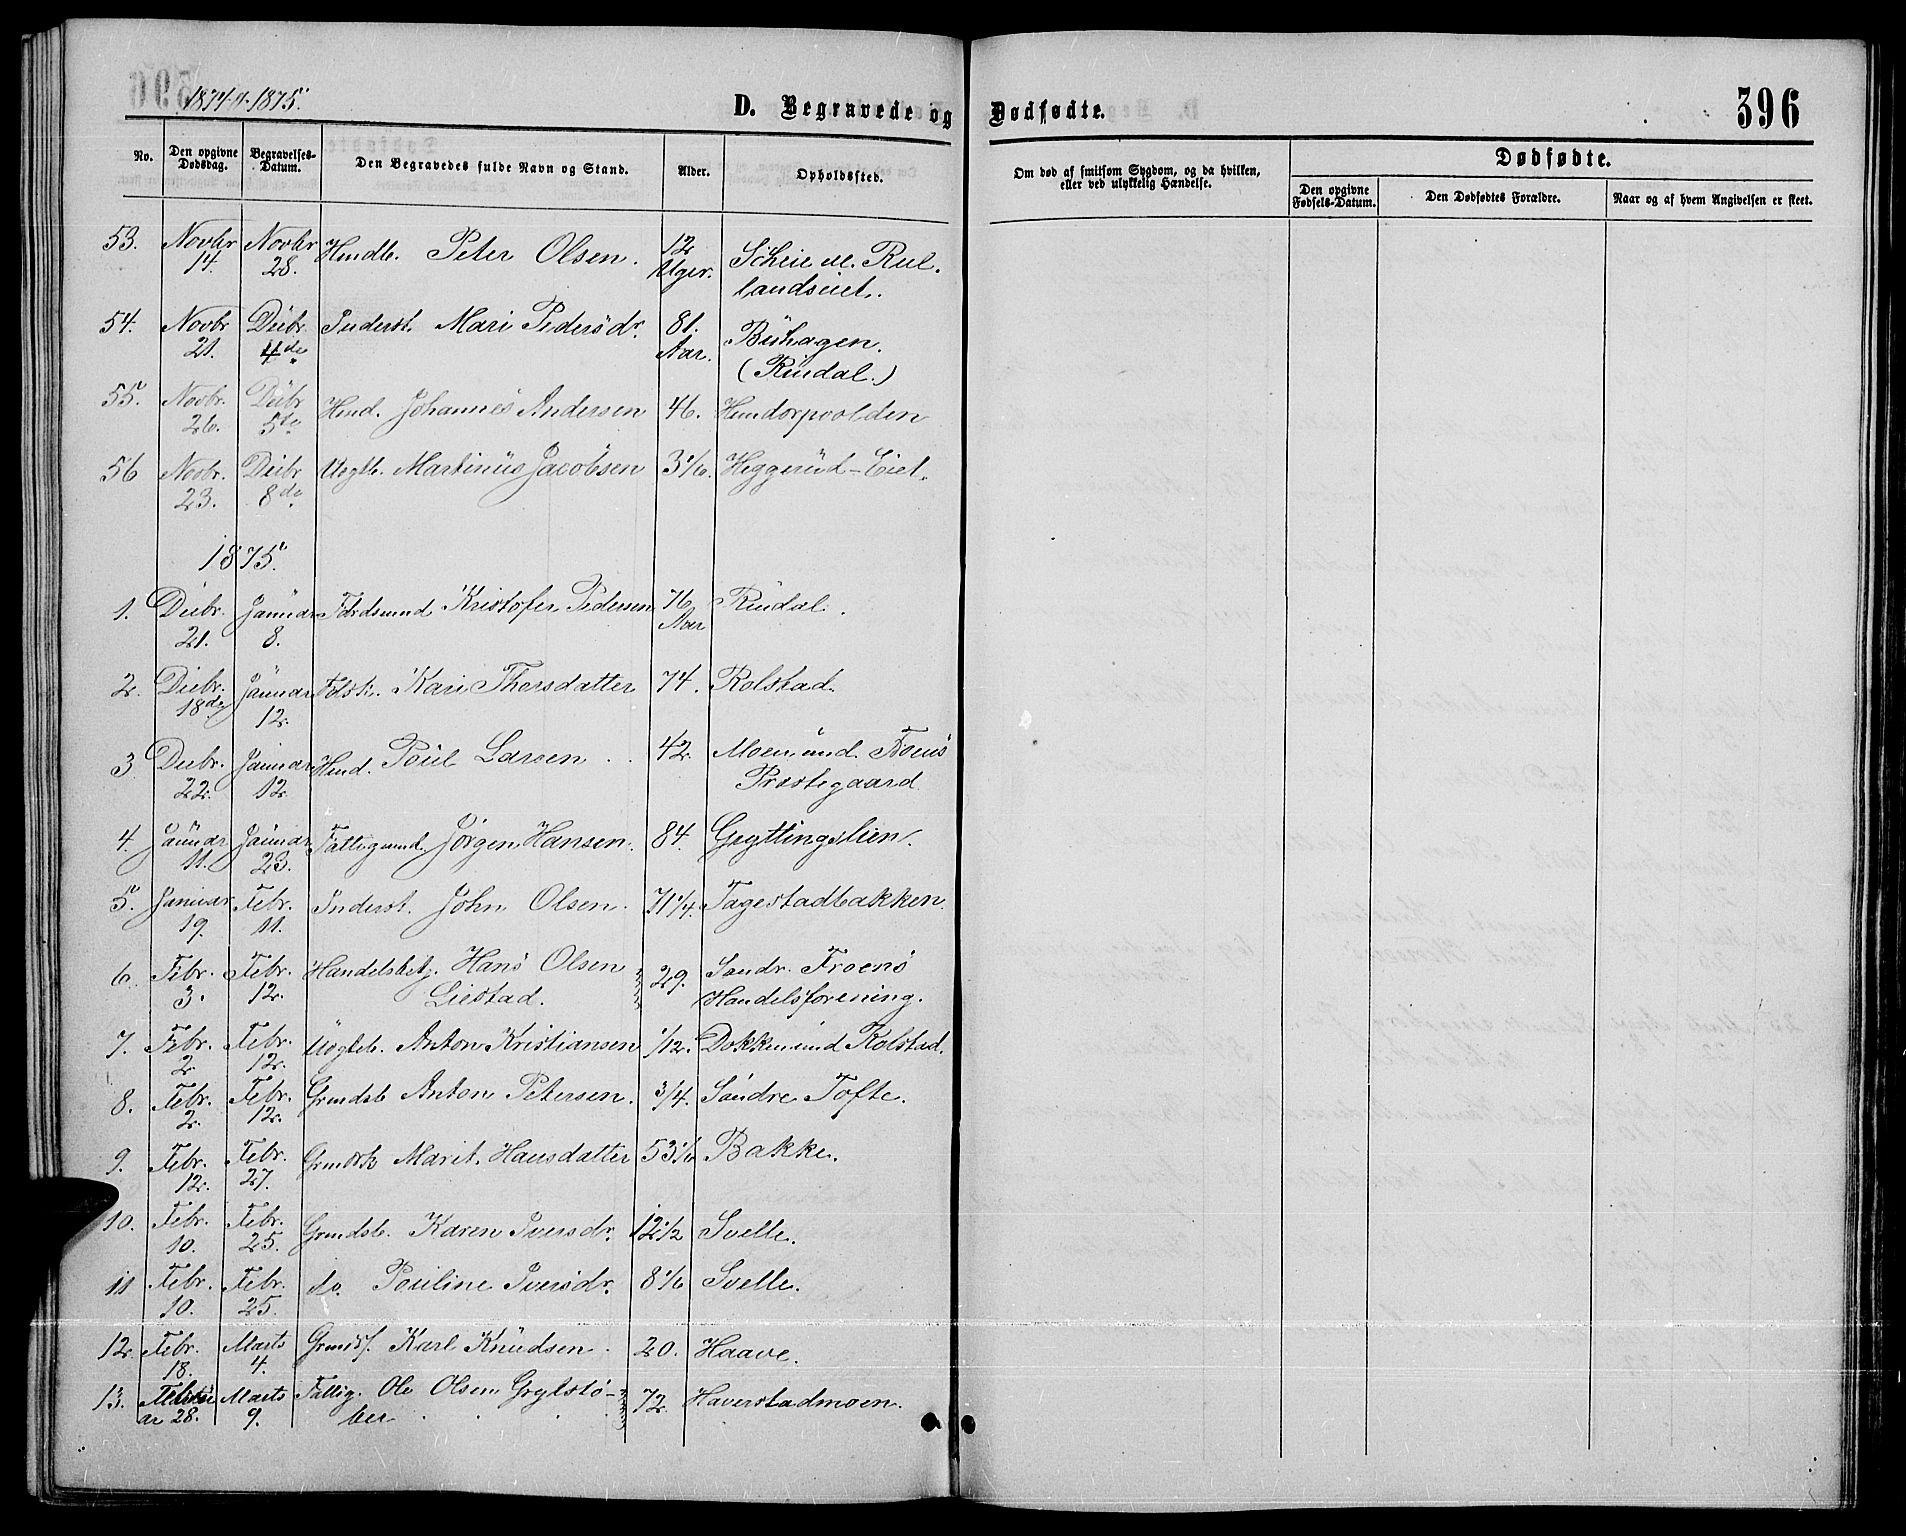 1874 & 1875.
D. Begravede og Dødfødte.
396
No.
Den opgivne Dødsdag.
Begravelses-Datum.
Den Begravedes fulde Navn og Stand.
Alder.
Opholdssted.
Om død af smitsom Sygdom, og da hvilken, eller ved ulykkelig Hændelse.
Dødfødte.
Den opgivne Fødsels-Datum.
Den Dødfødtes Forældre.
Naar og af hvem Angivelsen er skeet.
53. Novbr 14. Novbr 28. Husmdb. Peter Olsen. 12 Uger. Scheie u. Rul-
landseiet.
54. Novbr 21. Debr. 4de Inderst. Mari Pedersdr. 81. Aar. Büihagen.
(Rindal.)
55. Novbr. 26. Debr 5te Husmd. Johannes Andersen 46. Hundorpvolden
56 Novbr. 23. Debr 8de Uægteb. Martinus Jacobsen 3 1/6. Heggerud-Eiet.
1875.
1. Debr. 21. Januar 8. Føderaadsmand Kristofer Pedersen 76 Aar Rindal.
2. Debr. 18de Januar 12. Kari Thorsdatter 74. Rolstad.
3 Debr. 22. Januar 12. Husmd. Poul Larsen 42. Moen und. Froens
Præstegaard
4. Januar 11. Januar 23. Fattigmd. Jörgen Hansen. 84. Gryttingslien.
5. Januar 19. Febr. 11. Inderst. John Olsen. 71 1/4. Tagestadbakken.
6. Febr. 3. Febr. 12. Handelsbetj. Hans Olsen 29. Söndr. Froens
Liestad. Handelsforening.
7. Febr. 2. Febr. 12. Uægteb. Anton Kristiansen 1/12. Dokken und Kolstad.
8. Febr. 2. Febr. 12. Grmdsb Anton Petersen. 3/4. Söndre Tofte.
9. Febr. 12. Febr. 27. Grmdsk Marit Hansdatter 53 1/6 Bakke.
10. Febr. 10. Febr. 25. Grmdsb. Karen Iversdr. 12 1/2 Svelle.
11 Febr. 10. Febr. 25. do. Pouline Iversdr. 8 1/6 Svelle.
12. Febr. 18. Marts 4. Grmds. Karl Knudsen. 20. Haave.
13. Februar 28. Marts 9. Fattig. Ole Olsen Grytstö- 72. Haverstadmoen.
ber